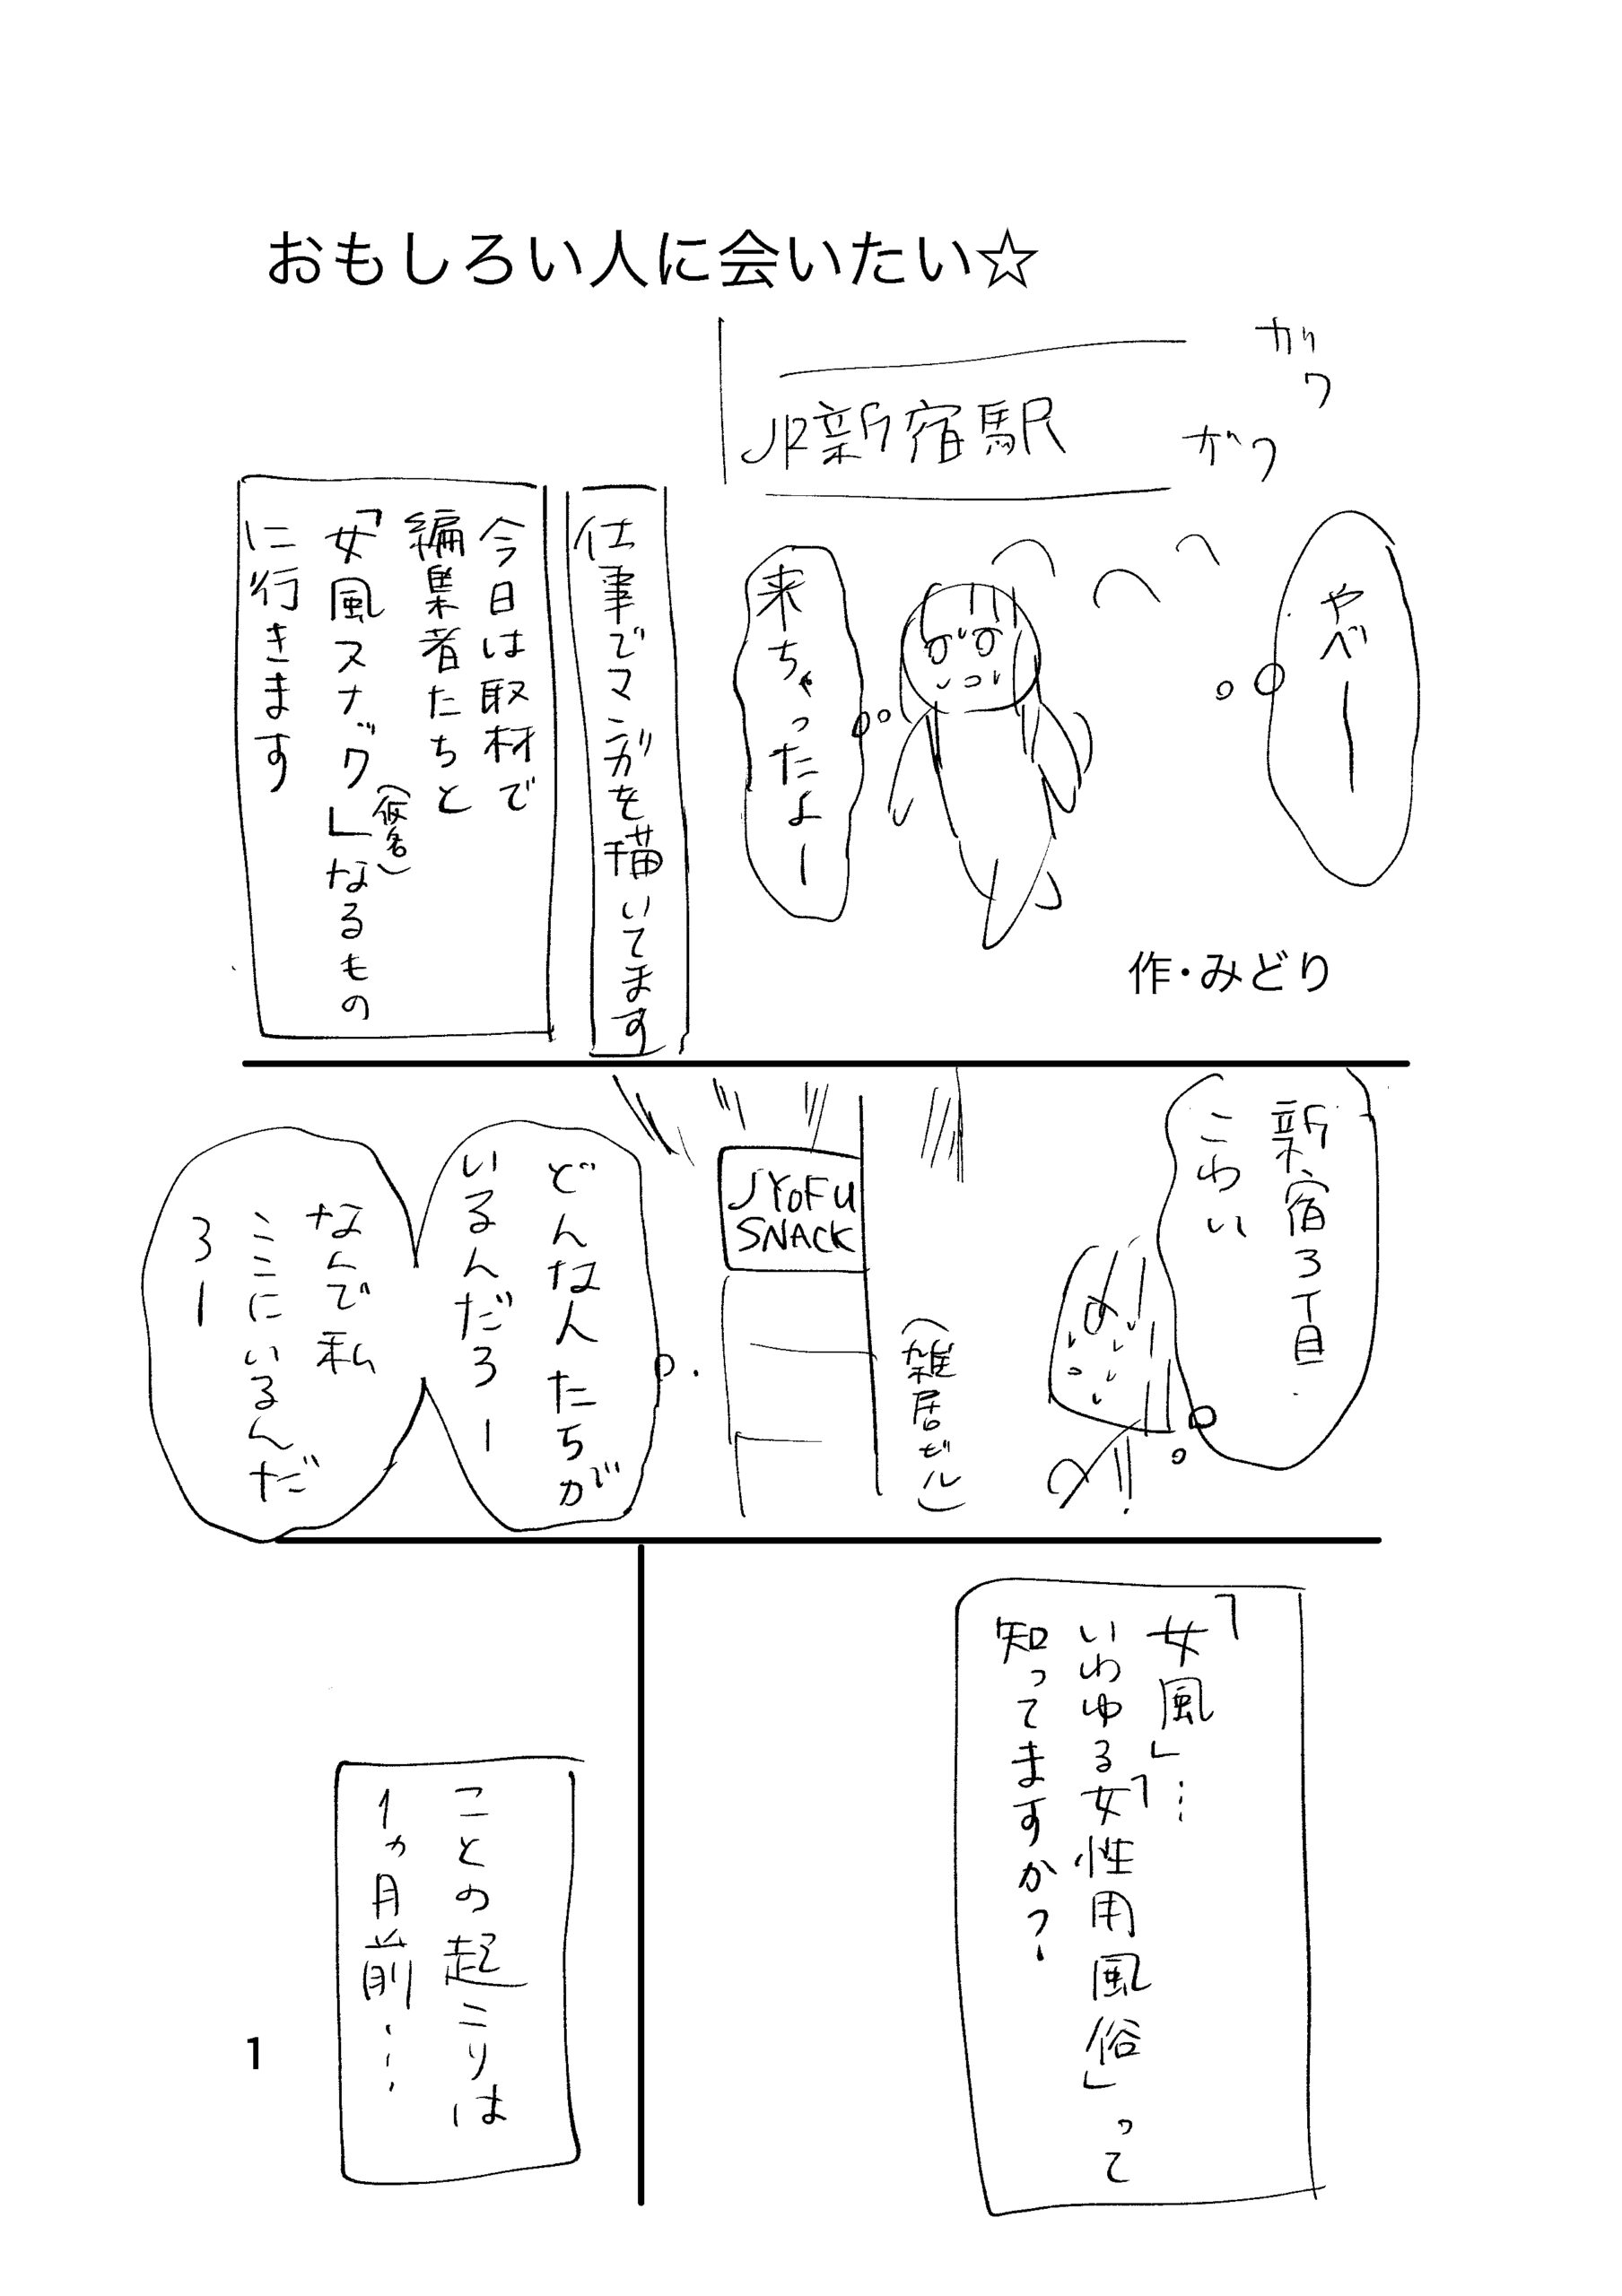 おもしろい人に会いたい☆
JR新宿駅
ガヤ
ガヤ
やべー
来ちゃったよー
作・みどり
仕事でマンガを描いてます
今日は取材で
編集者たちと
「女風スナック」なるもの
(仮名)
に行きます
新宿3丁目
こわい
(雑居ビル)
JYOFU
SNACK
どんな人たちが
いるんだろー
なんで私
ここにいるんだ
ろー
「女風」…
いわゆる「女性用風俗」って
知ってますか?
ことの起こりは
1ヵ月前…
1